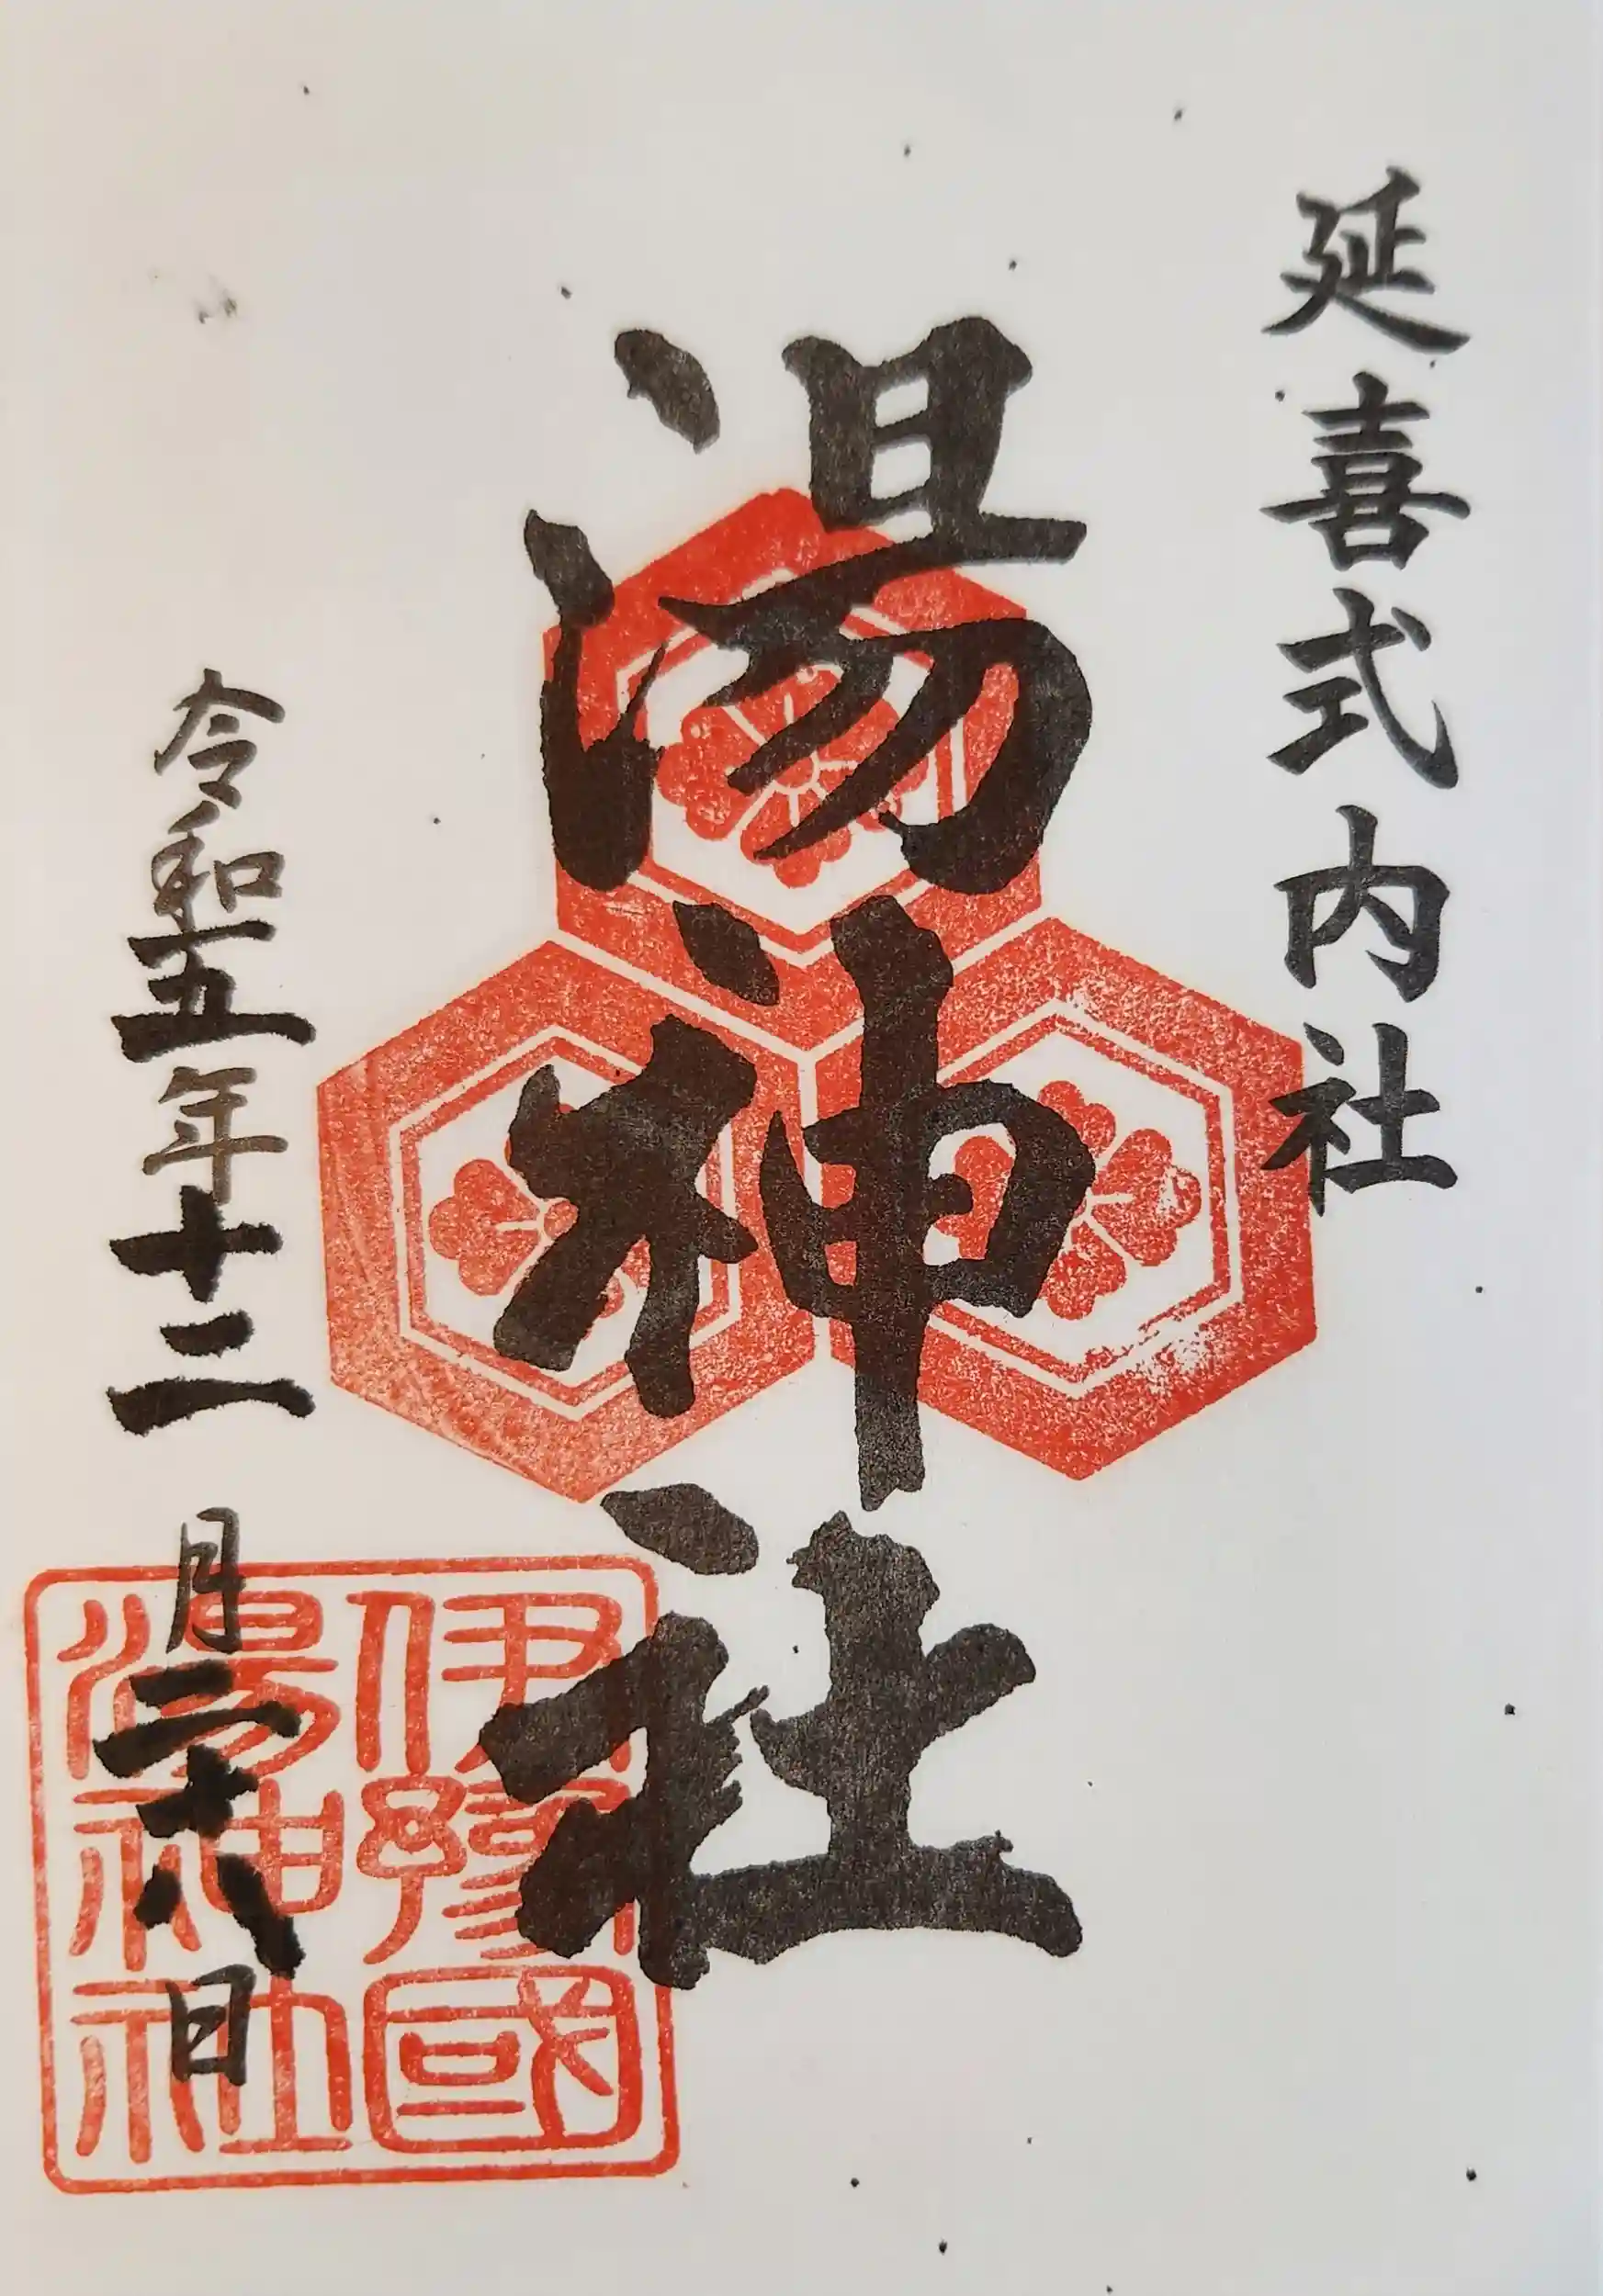 延喜式内社
湯神社
令和五年十二月二十八日
伊豫國
湯神社